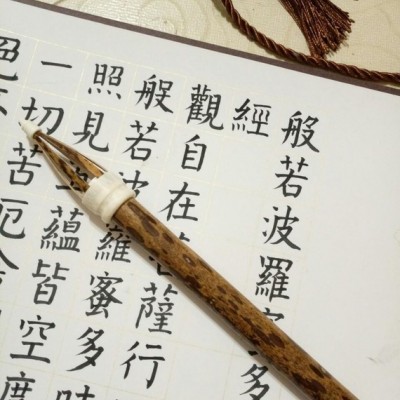 般若波羅蜜多
經
觀自在菩薩行
般若波羅蜜多時
照見五蘊皆空度
一切苦厄舍